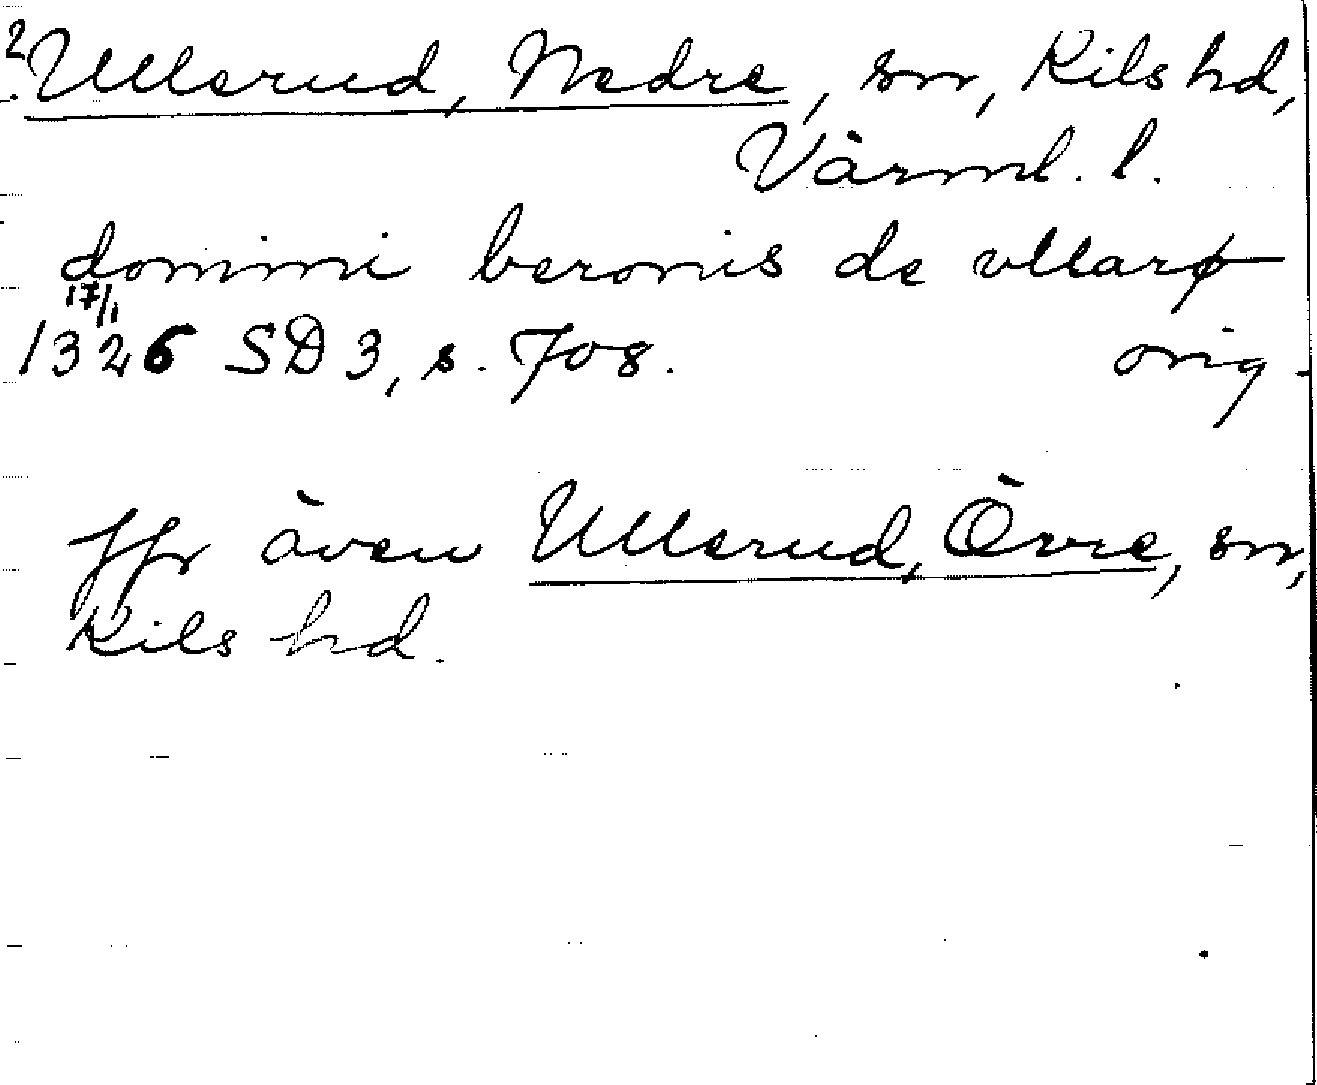 ? Ullerud, Nedre, sn, Kils hd,
Värml. l.
domini beronis de vllarø
17/1
1326 SD 3, s. 708. orig.
Jfr även Ullerud, Övre, sn,
Kils hd.